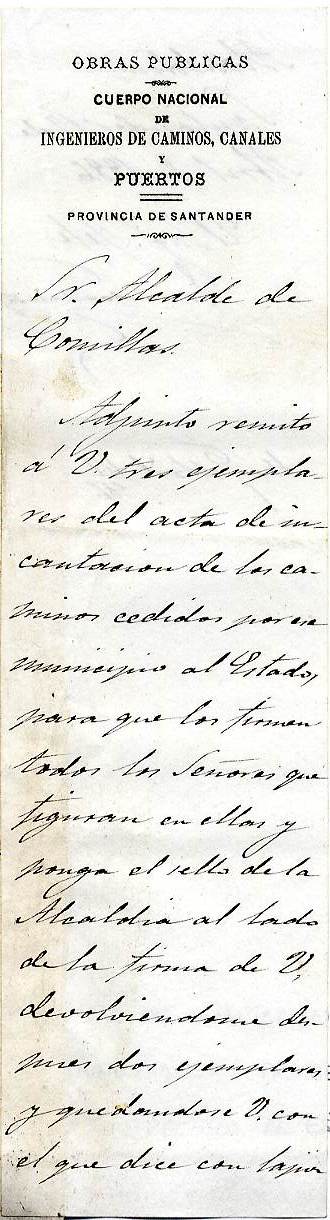 OBRAS PUBLICAS
CUERPO NACIONAL
DE
INGENIEROS DE CAMINOS, CANALES
Y
PUERTOS
PROVINCIA DE SANTANDER
Sr. Alcalde de
Comillas.
Adjunto remito
á V. tres ejempla-
res del acta de in-
cautacion de los ca-
minos cedidos por ese
municipio al Estado,
para que los firmen
todos los Señores que
figuran en ellas y
ponga el sello de la
Alcaldia al lado
de la firma de V,
devolviendome des-
pues dos ejemplares
y quedandose V. con
el que dice con lapiz